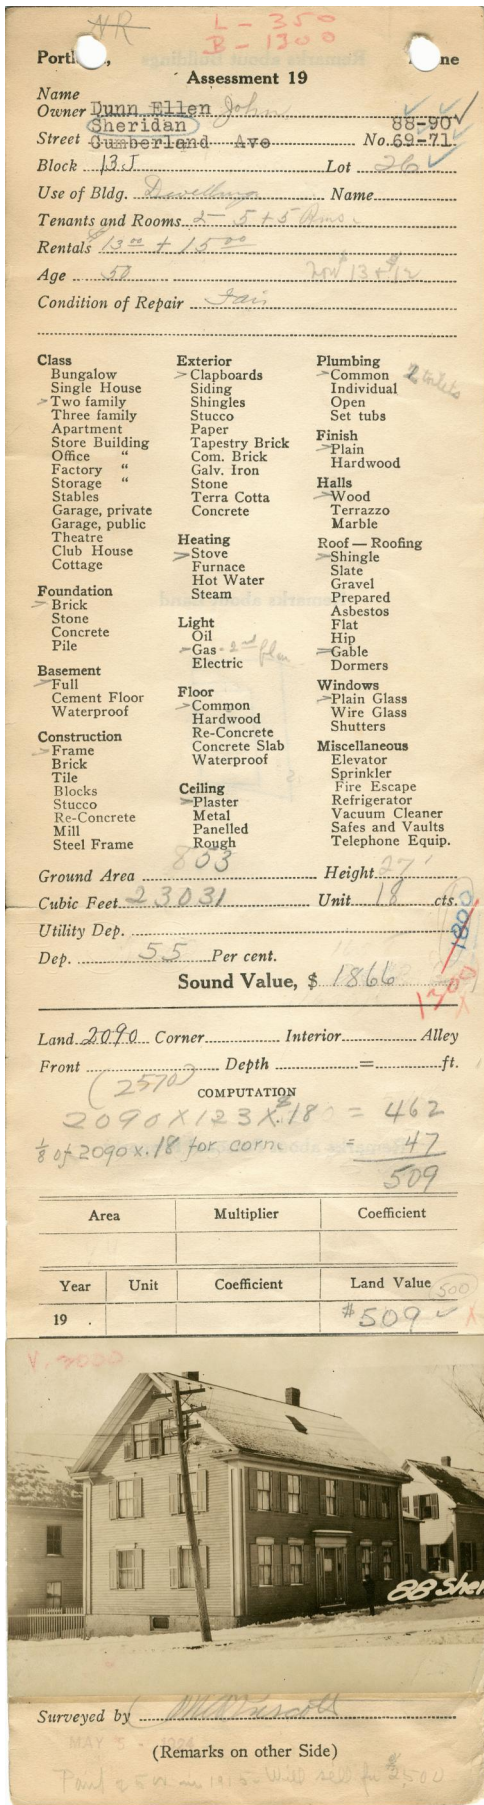 NR
L - 350
B - 1300
Portl , ne
Assessment 19
Name
Owner Dunn Ellen John
Sheridan 88-90
Street Cumberland Ave No. 69-71
Block 13J Lot 26
Use of Bldg. Dwelling Name
Tenants and Rooms 2- 5+5 Rms.
Rentals $13 00 + 15 00
Age 50 now 13 + $12
Condition of Repair Fair
Class
Bungalow
Single House
> Two family
Three family
Apartment
Store Building
Office "
Factory "
Storage "
Stables
Garage, private
Garage, public
Theatre
Club House
Cottage
Foundation
> Brick
Stone
Concrete
Pile
Basement
> Full
Cement Floor
Waterproof
Construction
> Frame
Brick
Tile
Blocks
Stucco
Re-Concrete
Mill
Steel Frame
Exterior
> Clapboards
Siding
Shingles
Stucco
Paper
Tapestry Brick
Com. Brick
Galv. Iron
Stone
Terra Cotta
Concrete
Heating
> Stove
Furnace
Hot Water
Steam
Light
Oil
> Gas - 2nd floor
Electric
Floor
> Common
Hardwood
Re-Concrete
Concrete Slab
Waterproof
Ceiling
> Plaster
Metal
Panelled
Rough
Plumbing
> Common 2 toilets
Individual
Open
Set tubs
Finish
> Plain
Hardwood
Halls
> Wood
Terrazzo
Marble
Roof — Roofing
> Shingle
Slate
Gravel
Prepared
Asbestos
Flat
Hip
> Gable
Dormers
Windows
> Plain Glass
Wire Glass
Shutters
Miscellaneous
Elevator
Sprinkler
Fire Escape
Refrigerator
Vacuum Cleaner
Safes and Vaults
Telephone Equip.
Ground Area 853 Height 27'
Cubic Feet 23031 Unit 18 cts.
Utility Dep.
1800
Dep. 55 Per cent.
Sound Value, $ 1866 1300
Land 2090 Corner Interior Alley
Front Depth = ft.
(2570)
COMPUTATION
2090 X 123 X .18 = 462
1/8 of 2090 x .18 for corn. = 47
509
Area Multiplier Coefficient
Year Unit Coefficient Land Value 500
19 . $509
V. 2000
88 Sher
Surveyed by
MAY 5 - 1924
(Remarks on other Side)
Paid in 1915. Will sell for $2500